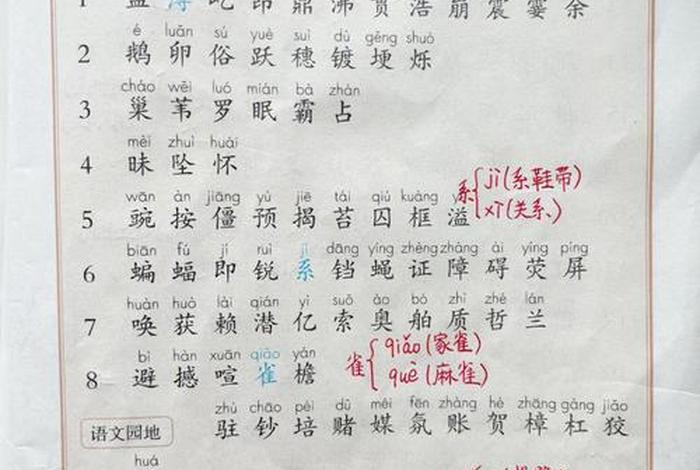 盐 薄 屹 昂 鼎 沸 贯 浩 崩 震 霎 余
é luǎn sú yuè suì dù gěng shuò
2 鹅 卵 俗 跃 穗 镀 埂 烁
cháo wěi luó mián bà zhàn
3 巢 苇 罗 眠 霸 占
mèi zhuì huái
4 昧 坠 怀
系 jì (系鞋带)
xì (关系)
wān àn jiāng yù jiē tái qiú kuàng
5 豌 按 僵 预 揭 苔 囚 框 溢
biān fú jí ruì jì dāng yíng zhèng zhàng ài yíng píng
6 蝙 蝠 即 锐 系 铛 蝇 证 障 碍 荧 屏
huàn huò lài qián yì suǒ ào bó zhì zhé lán
7 唤 获 赖 潜 亿 索 奥 舶 质 哲 兰
雀 qiǎo (家雀)
què (麻雀)
bì hàn xuān qiǎo yán
8 避 撼 喧 雀 檐
zhù chāo péi dǔ méi fēn zhàng hè zhāng gàng jiǎo
语文园地 驻 钞 培 赌 媒 氛 账 贺 樟 杠 狡
huá